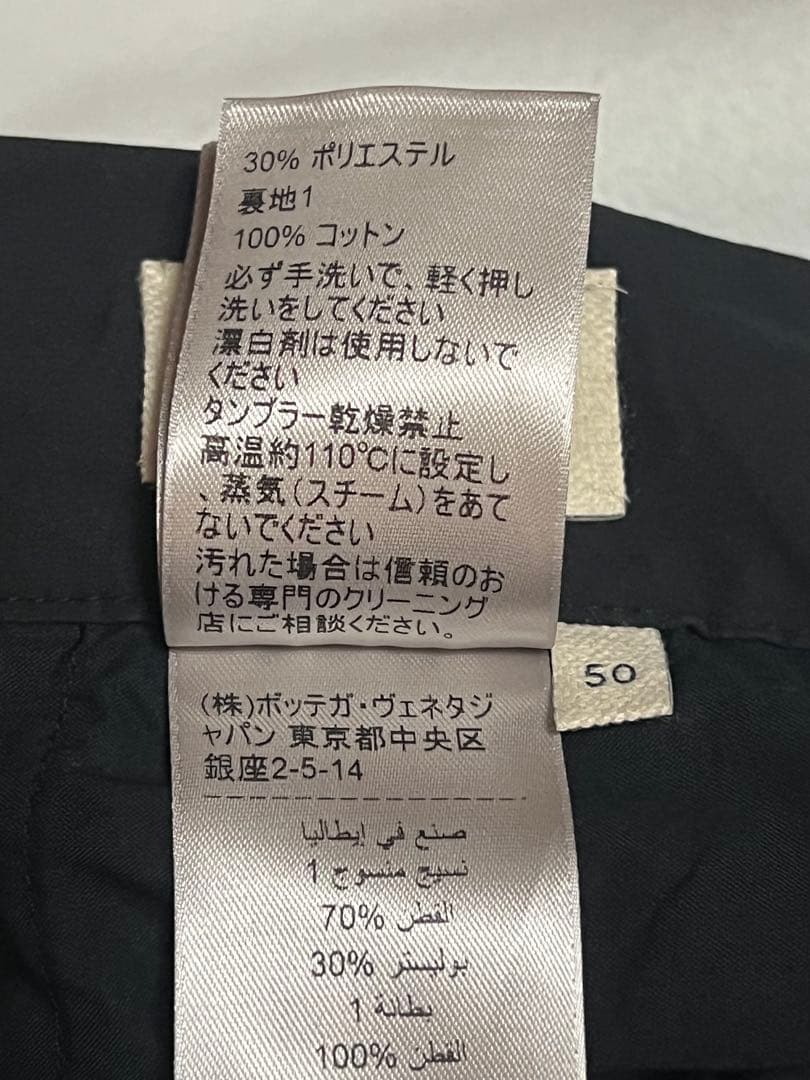 30% ポリエステル
裏地1
100% コットン
必ず手洗いで、軽く押し
洗いをしてください
漂白剤は使用しないで
ください
タンブラー乾燥禁止
高温約110℃に設定し
、蒸気(スチーム)をあて
ないでください
汚れた場合は信頼のお
ける専門のクリーニング
店にご相談ください。
50
(株)ボッテガ・ヴェネタジ
ャパン 東京都中央区
銀座2-5-14
صنع في إيطاليا
نسيج منسوج 1
القطن %70
بوليستر %30
بطانة 1
القطن %100